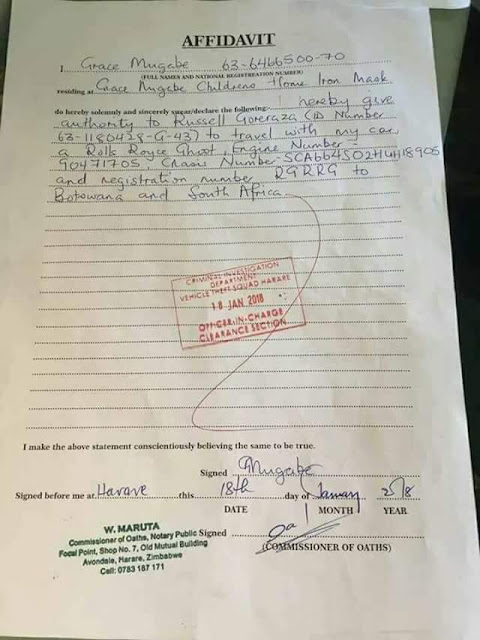 AFFIDAVIT
I Grace Mugabe 63-6466500-70
(FULL NAMES AND NATIONAL REGISTRATION NUMBER)
residing at Grace Mugabe Childrens Home Iron Mask
do hereby solemnly and sincerely sugar/declare the following: I hereby give
authority to Russell Goreraza (ID Number
63-1180428-G-43) to travel with my car
a Rolls Royce Ghost, Engine Number -
90471705, Chasis Number-SCA664S02H4H18905
and registration number RGRRG to
Botswana and South Africa
CRIMINAL INVESTIGATION
DEPARTMENT
VEHICLE THEFT SQUAD HARARE
18 JAN 2018
OFFICER-IN-CHARGE
CLEARANCE SECTION
I make the above statement conscientiously believing the same to be true.
Signed GMugabe
Signed before me at Harare this 18th day of January 2018
DATE MONTH YEAR
W. MARUTA
Commissioner of Oaths, Notary Public
Focal Point, Shop No. 7, Old Mutual Building
Avondale, Harare, Zimbabwe
Cell: 0783 187 171
Signed
(COMMISSIONER OF OATHS)